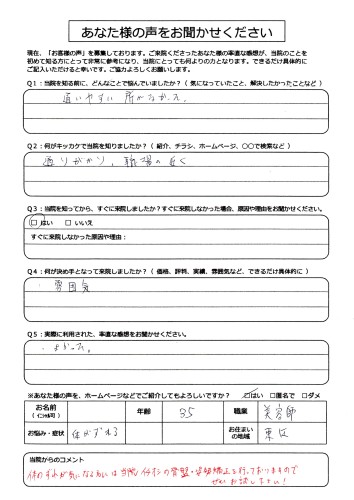 あなた様の声をお聞かせください
現在、「お客様の声」を募集しております。ご来院くださったあなた様の率直な感想が、当院のことを
初めて知る方にとって非常に参考になり、当院にとっても何よりの力となります。できるだけ具体的に
ご記入いただけると幸いです。ご協力よろしくお願いします。
Q1:当院を知る前に、どんなことで悩んでいましたか?( 気になっていたこと、解決したかったことなど )
通いやすい 所がなかった。
Q2:何がキッカケで当院を知りましたか?( 紹介、チラシ、ホームページ、〇〇で検索など )
通りがかり, 職場の近く
Q3:当院を知ってから、すぐに来院しましたか?すぐに来院しなかった場合、原因や理由をお聞かせください。
□ はい □ いいえ
すぐに来院しなかった原因や理由:
Q4:何が決め手となって来院しましたか?( 価格、評判、実績、雰囲気など、できるだけ具体的に )
・雰囲気
Q5:実際に利用された、率直な感想をお聞かせください。
・よかった。
※あなた様の声を、ホームページなどでご紹介してもよろしいですか? □はい □匿名で □ダメ
お名前
(イニシャル可)
年齢 35 職業 美容師
お悩み・症状 体がずれる お住まい
の地域 東区
当院からのコメント
体のずれが気になる方は当院イチオシの骨盤・姿勢矯正を行っておりますので
ぜひお試し下さい!